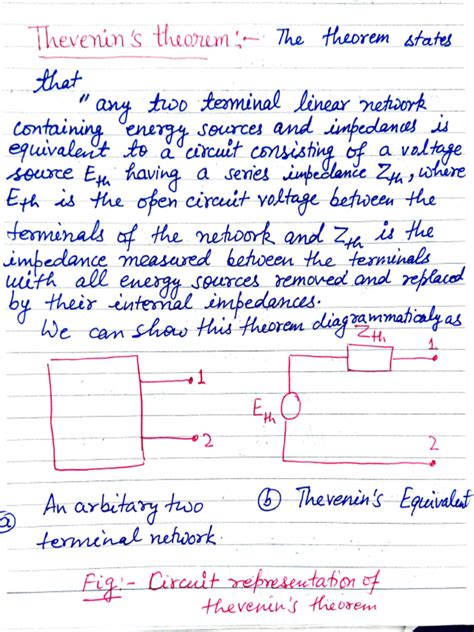 Thevenin's theorem:- The theorem states
that
"any two terminal linear network
containing energy sources and impedances is
equivalent to a circuit consisting of a voltage
source Eth having a series impedance Zth, where
Eth is the open circuit voltage between the
terminals of the network and Zth is the
impedance measured between the terminals
with all energy sources removed and replaced
by their internal impedances.
We can show this theorem diagrammaticaly as
Zth
1
1
Eth
2
2
(a) An arbitary two
terminal network.
(b) Thevenin's Equivalent
Fig:- Circuit representation of
thevenin's theorem